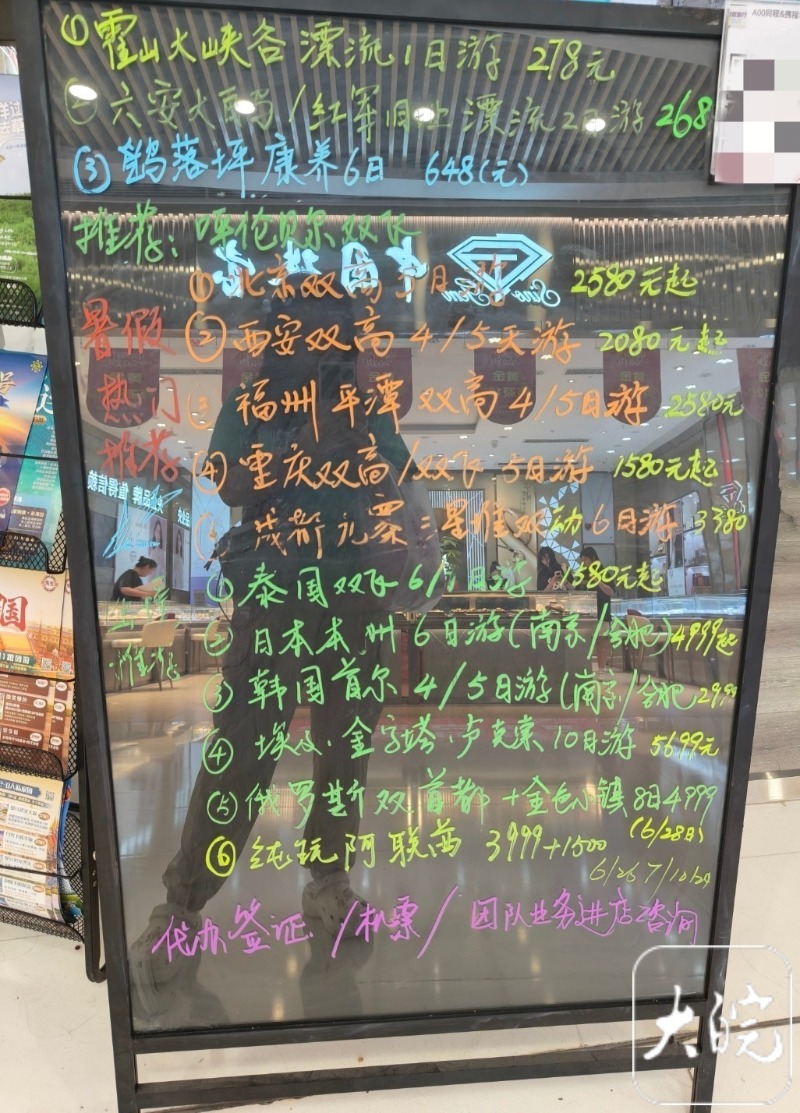 A00同程&携程
① 霍山大峡谷 漂流1日游 278元
② 六安大 /红军 漂流2日游 268
③ 鹞落坪康养6日 648(元)
推荐: 呼伦贝尔双飞
暑假热门推荐
① 北京双高5日游 2580元起
② 西安双高4/5天游 2080元起
③ 福州平潭双高4/5日游 2580元
④ 重庆双高/双飞5日游 1580元起
成都九寨三星堆双动6日游 3380
推荐
① 泰国双飞6/ 日游 1580元起
② 日本本州6日游(南京/合肥)4999起
③ 韩国首尔4/5日游(南京/合肥 299
④ 埃及·金字塔·卢克索10日游 5699元
⑤ 俄罗斯双首都+金色小镇8日4999
(6/28日)
⑥ 纯玩阿联酋 3999+1500
6/26 7/10/24
代办签证/机票/团队业务进店咨询
大皖